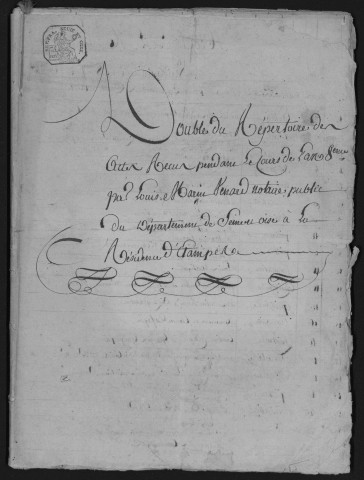 Double du Répertoire des
Actes Reçus pendant le Cours de l'an 8eme
par Louis Marin Venard notaire public
du Département de Seine et oise à La
Résidence d'Etampes